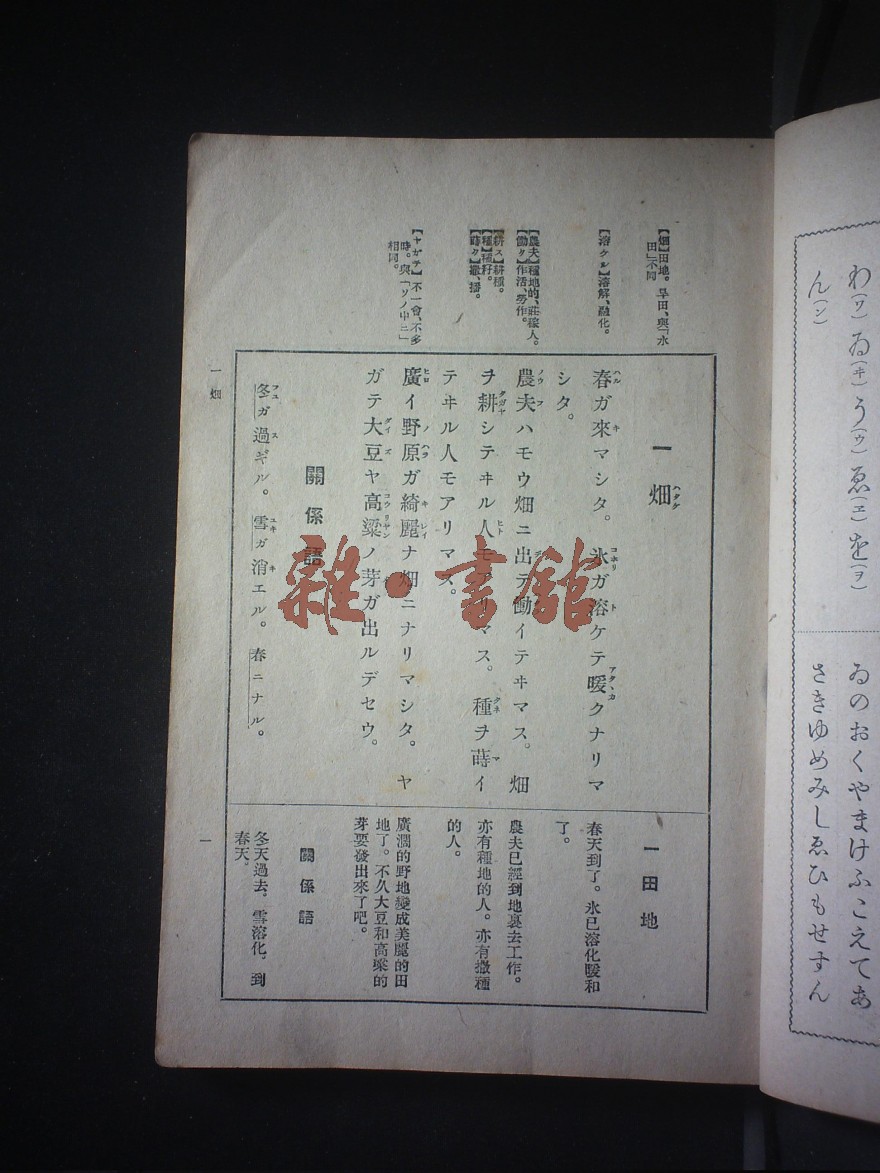 わ(ワ)ゐ(ヰ)う(ウ)ゑ(ヱ)を(ヲ)
ん(ン)
ゐのおくやまけふこえてあ
さきゆめみしゑひもせすん
【畑】田地。旱田、與「水
田」不同
【溶ケル】溶解、融化。
【農夫】種地的、莊稼人。
【働ク】作活、勞作。
【耕ス】耕種。
【種】種籽。
【蒔ク】撒、播。
【ヤガテ】不一會、不多
時。與「ソノ中ニ」
相同。
一 畑
ハタケ
春ガ來マシタ。氷ガ溶ケテ暖クナリマ
シタ。
農夫ハモウ畑ニ出テ働イテヰマス。畑
ヲ耕シテヰル人モアリマス。種ヲ蒔イ
テヰル人モアリマス。
廣イ野原ガ綺麗ナ畑ニナリマシタ。ヤ
ガテ大豆ヤ高粱ノ芽ガ出ルデセウ。
關係語
冬ガ過ギル。雪ガ消エル。春ニナル。
一 田地
春天到了。氷已溶化暖和
了。
農夫已經到地裏去工作。
亦有種地的人。亦有撒種
的人。
廣濶的野地變成美麗的田
地了。不久大豆和高粱的
芽要發出來了吧。
關係語
冬天過去。雪溶化。到
春天。
一 畑
一
雜·書舘